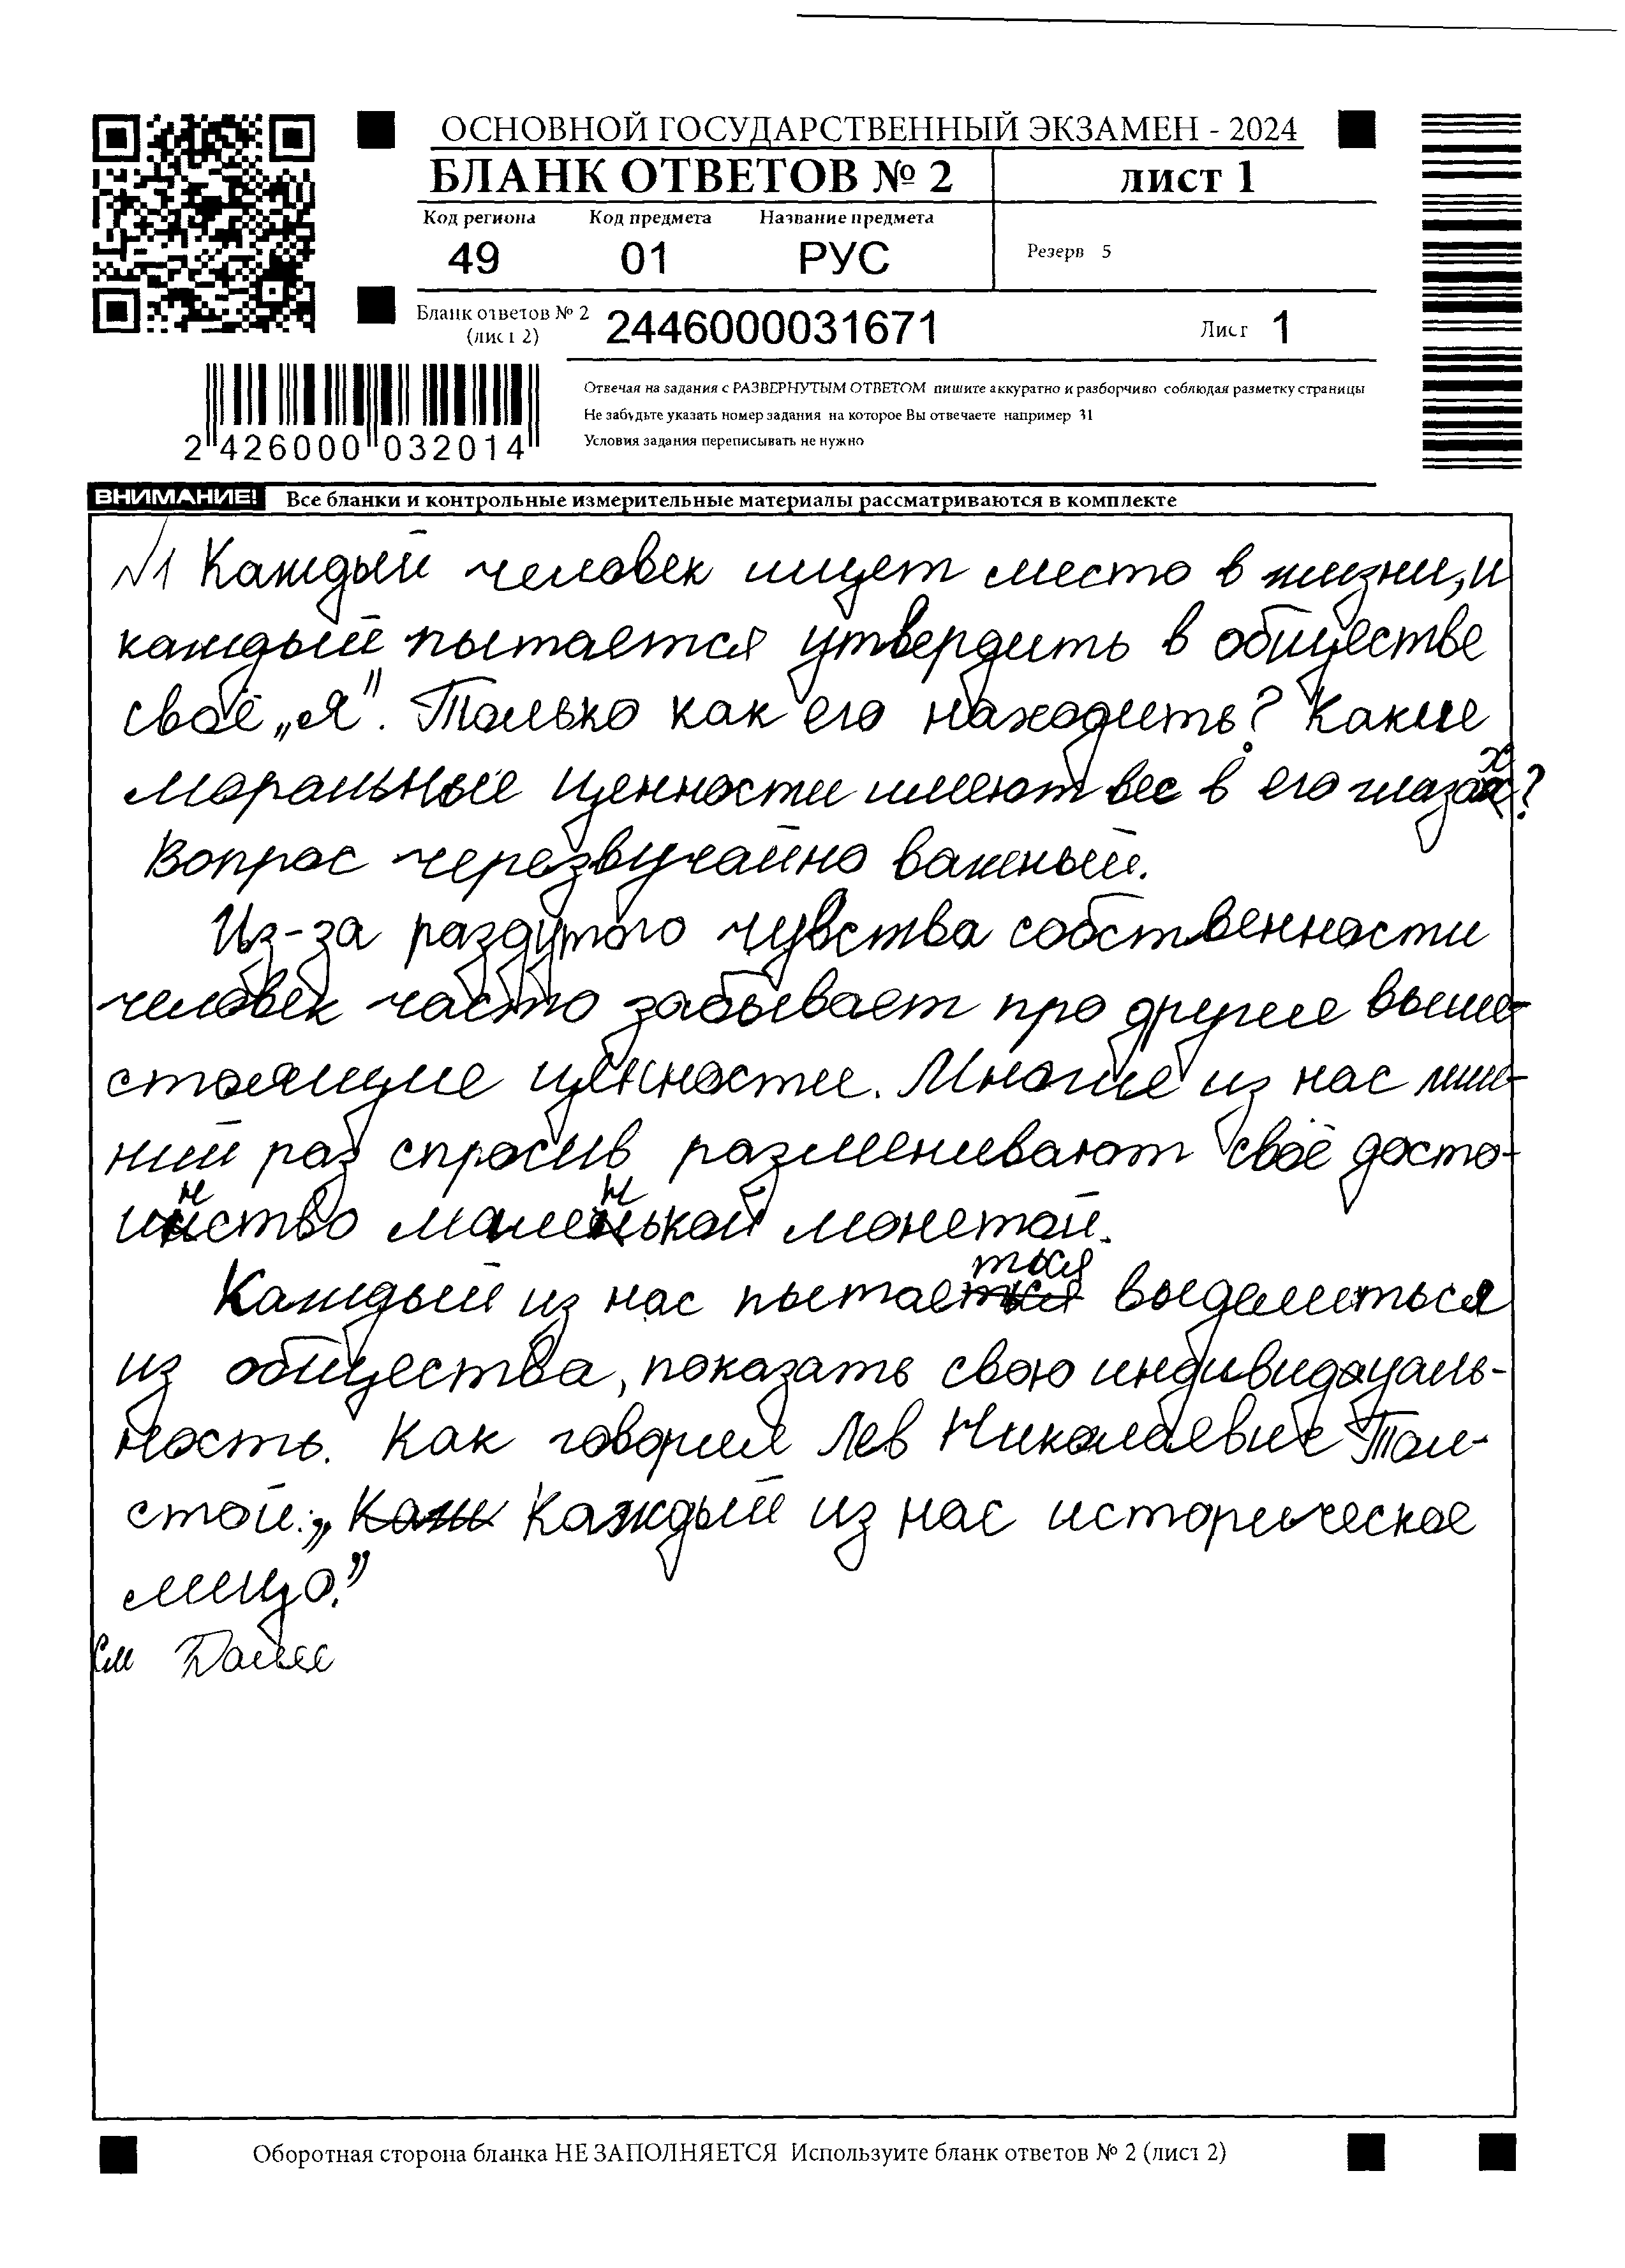 ОСНОВНОЙ ГОСУДАРСТВЕННЫЙ ЭКЗАМЕН - 2024
БЛАНК ОТВЕТОВ № 2
ЛИСТ 1
Код региона Код предмета Название предмета
49 01 РУС
Резерв 5
Бланк ответов № 2
(лист 2)
2446000031671
Лист 1
Отвечая на задания с РАЗВЕРНУТЫМ ОТВЕТОМ пишите аккуратно и разборчиво соблюдая разметку страницы
Не забудьте указать номер задания на которое Вы отвечаете например 31
Условия задания переписывать не нужно
2 426000 032014
ВНИМАНИЕ! Все бланки и контрольные измерительные материалы рассматриваются в комплекте
№1 Каждый человек ищет место в жизни, и
каждый пытается утвердить в обществе
своё „я". Только как его находить? Какие
моральные ценности имеют вес в его глазах?
Вопрос черезвучайно важный.
Из-за раздутого чувства собственности
человек часто забывает про другие выше-
стоящие ценности. Многие из нас лиш-
ний раз спросив разменивают своё досто-
инство маленькой монетой.
Каждый из нас пытаеться выделиться
из общества, показать свою индивидауаль-
ность. Как говорил Лев Николаевич Тол-
стой: „Каж Каждый из нас историческое
лицо."
См Далее
Оборотная сторона бланка НЕ ЗАПОЛНЯЕТСЯ Используйте бланк ответов № 2 (лист 2)